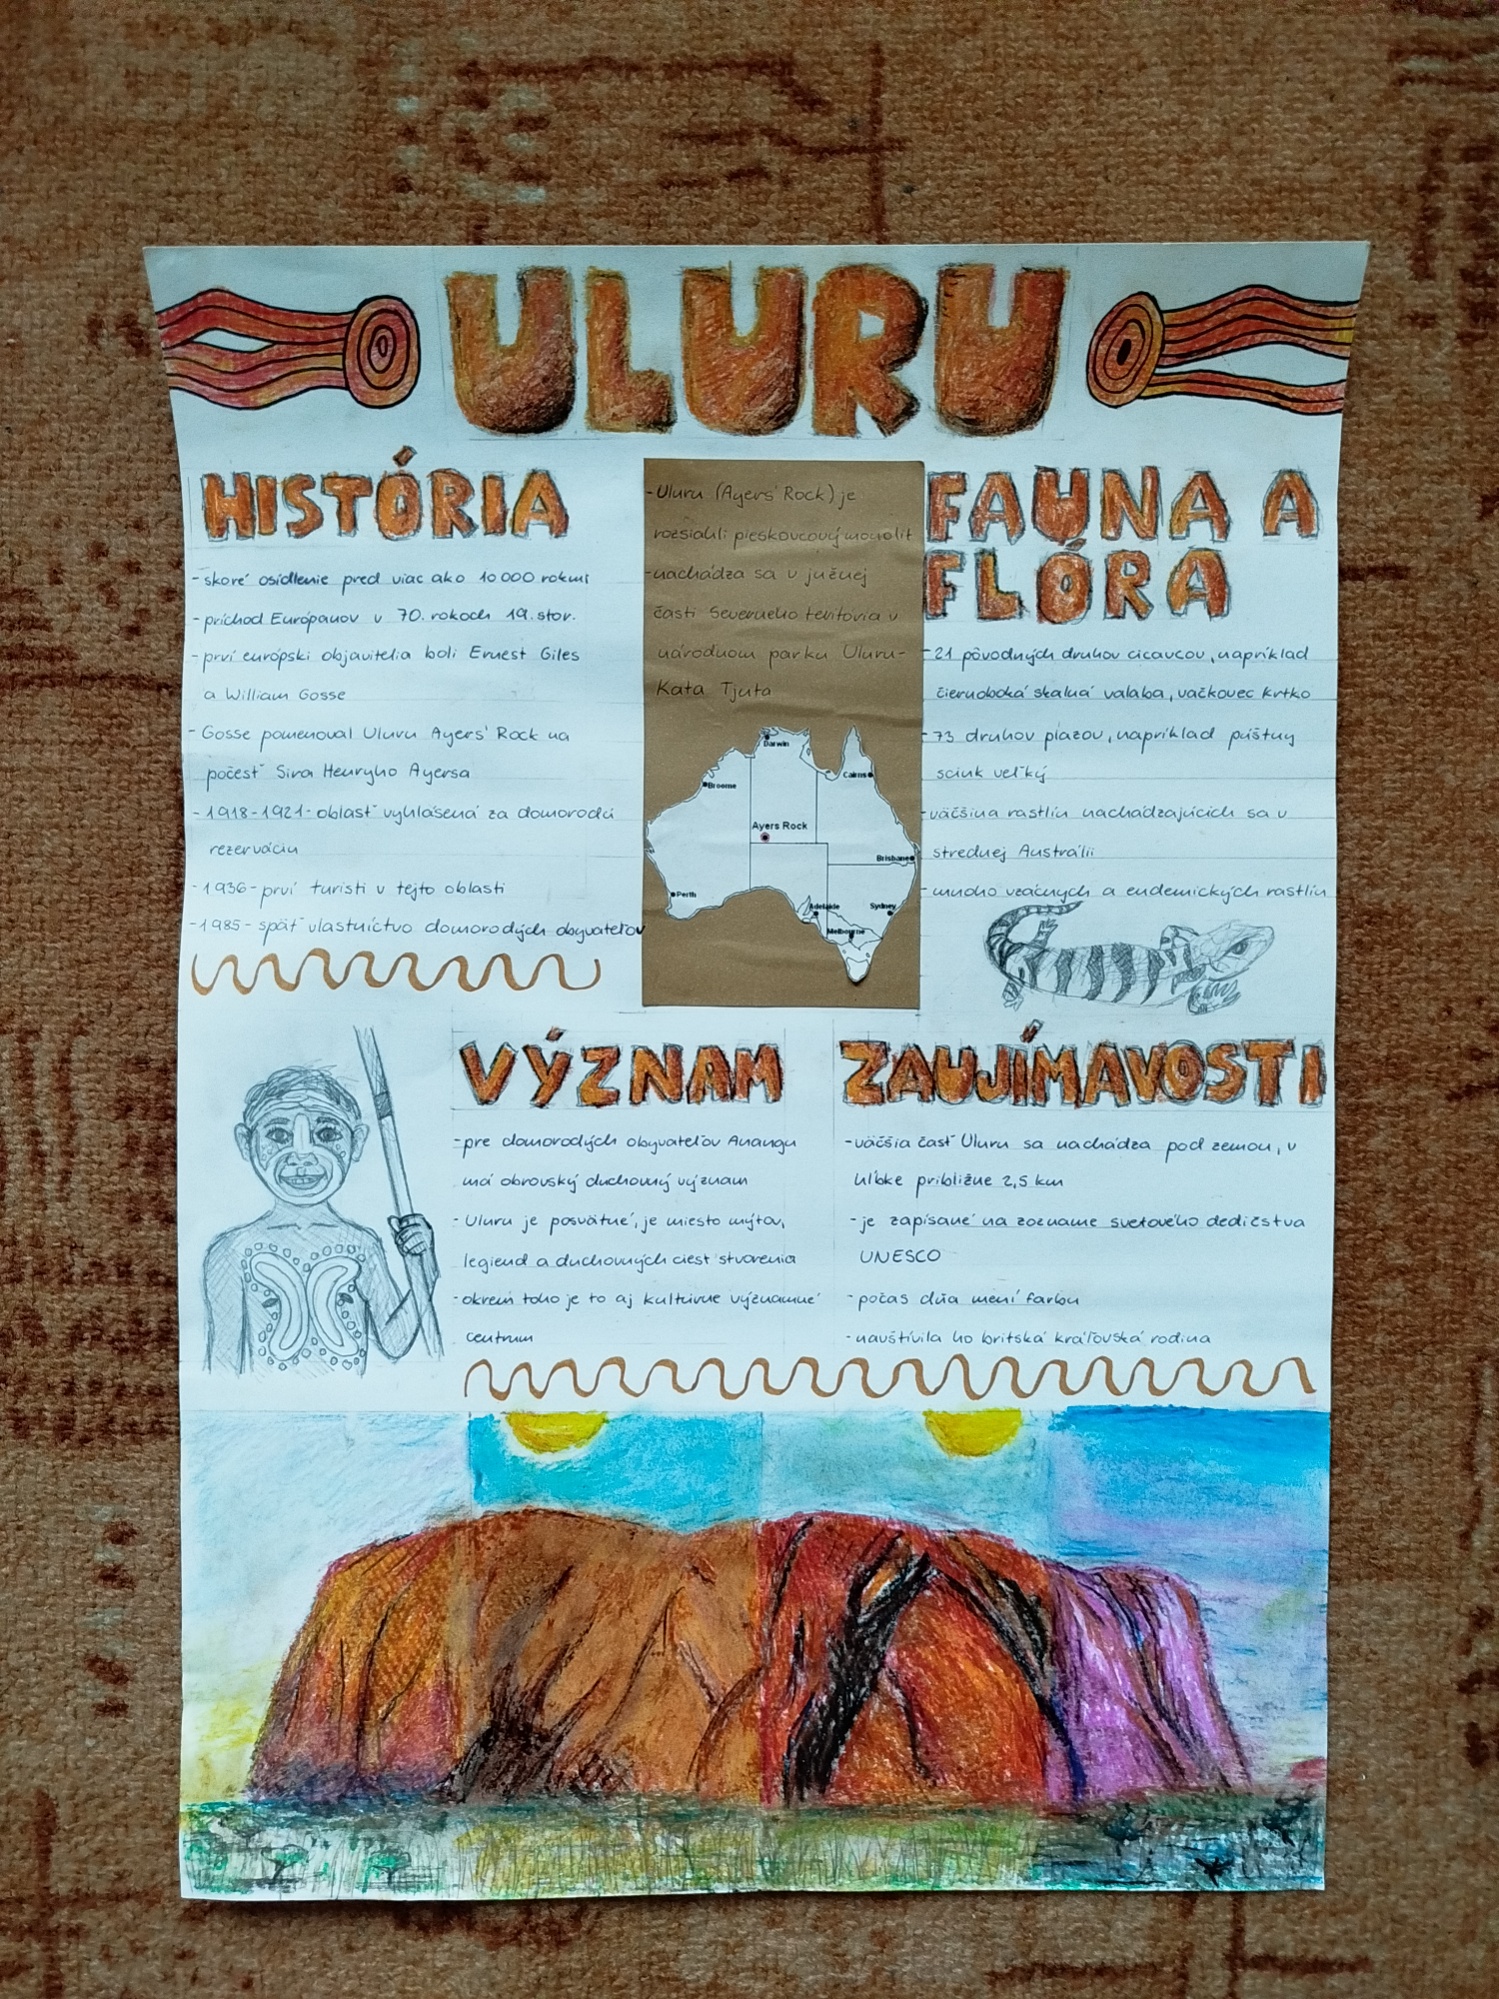 ULURU
HISTÓRIA
- skoré osídlenie pred viac ako 10 000 rokmi
- príchod Európanov v 70. rokoch 19. stor.
- prví európski objavitelia boli Ernest Giles
a William Gosse
- Gosse pomenoval Uluru Ayers' Rock na
počesť Sira Henryho Ayersa
- 1918-1921- oblasť vyhlásená za domorodú
rezerváciu
- 1936- prví turisti v tejto oblasti
- 1985- späť vlastníctvo domorodých obyvateľov
- Uluru (Ayers' Rock) je
rozsiahli pieskovcový monolit
- nachádza sa v južnej
časti Severného teritória v
národnom parku Uluru-
Kata Tjuta
Darwin
Cairns
Broome
Ayers Rock
Brisbane
Perth
Adelaide
Sydney
Melbourne
FAUNA A
FLÓRA
- 21 pôvodných druhov cicavcov, napríklad
čiernoboká skalná valaba, vačkovec krtko
- 73 druhov plazov, napríklad púštny
scink veľký
- väčšina rastlín nachádzajúcich sa v
strednej Austrálii
- mnoho vzácnych a endemických rastlín
VÝZNAM
- pre domorodých obyvateľov Anangu
má obrovský duchovný význam
- Uluru je posvätné, je miesto mýtov,
legiend a duchovných ciest stvorenia
- okrem toho je to aj kultúrne významné
centrum
ZAUJÍMAVOSTI
- väčšia časť Uluru sa nachádza pod zemou, v
hĺbke približne 2,5 km
- je zapísané na zozname svetového dedičstva
UNESCO
- počas dňa mení farbu
- navštívila ho britská kráľovská rodina